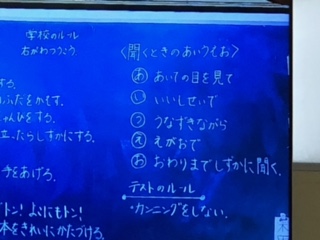 学校のルール
右がわつうこう
する。
ふたをかもす。
ゃんびをする。
立ったらしずかにする。
手をあげる。
ドン!
本をきれいにかたづける。
〈聞くときのあいうえお〉
あ あいての目を見て
い いいしせいで
う うなずきながら
え えがおで
お おわりまでしずかに聞く。
テストのルール
・カンニングをしない。